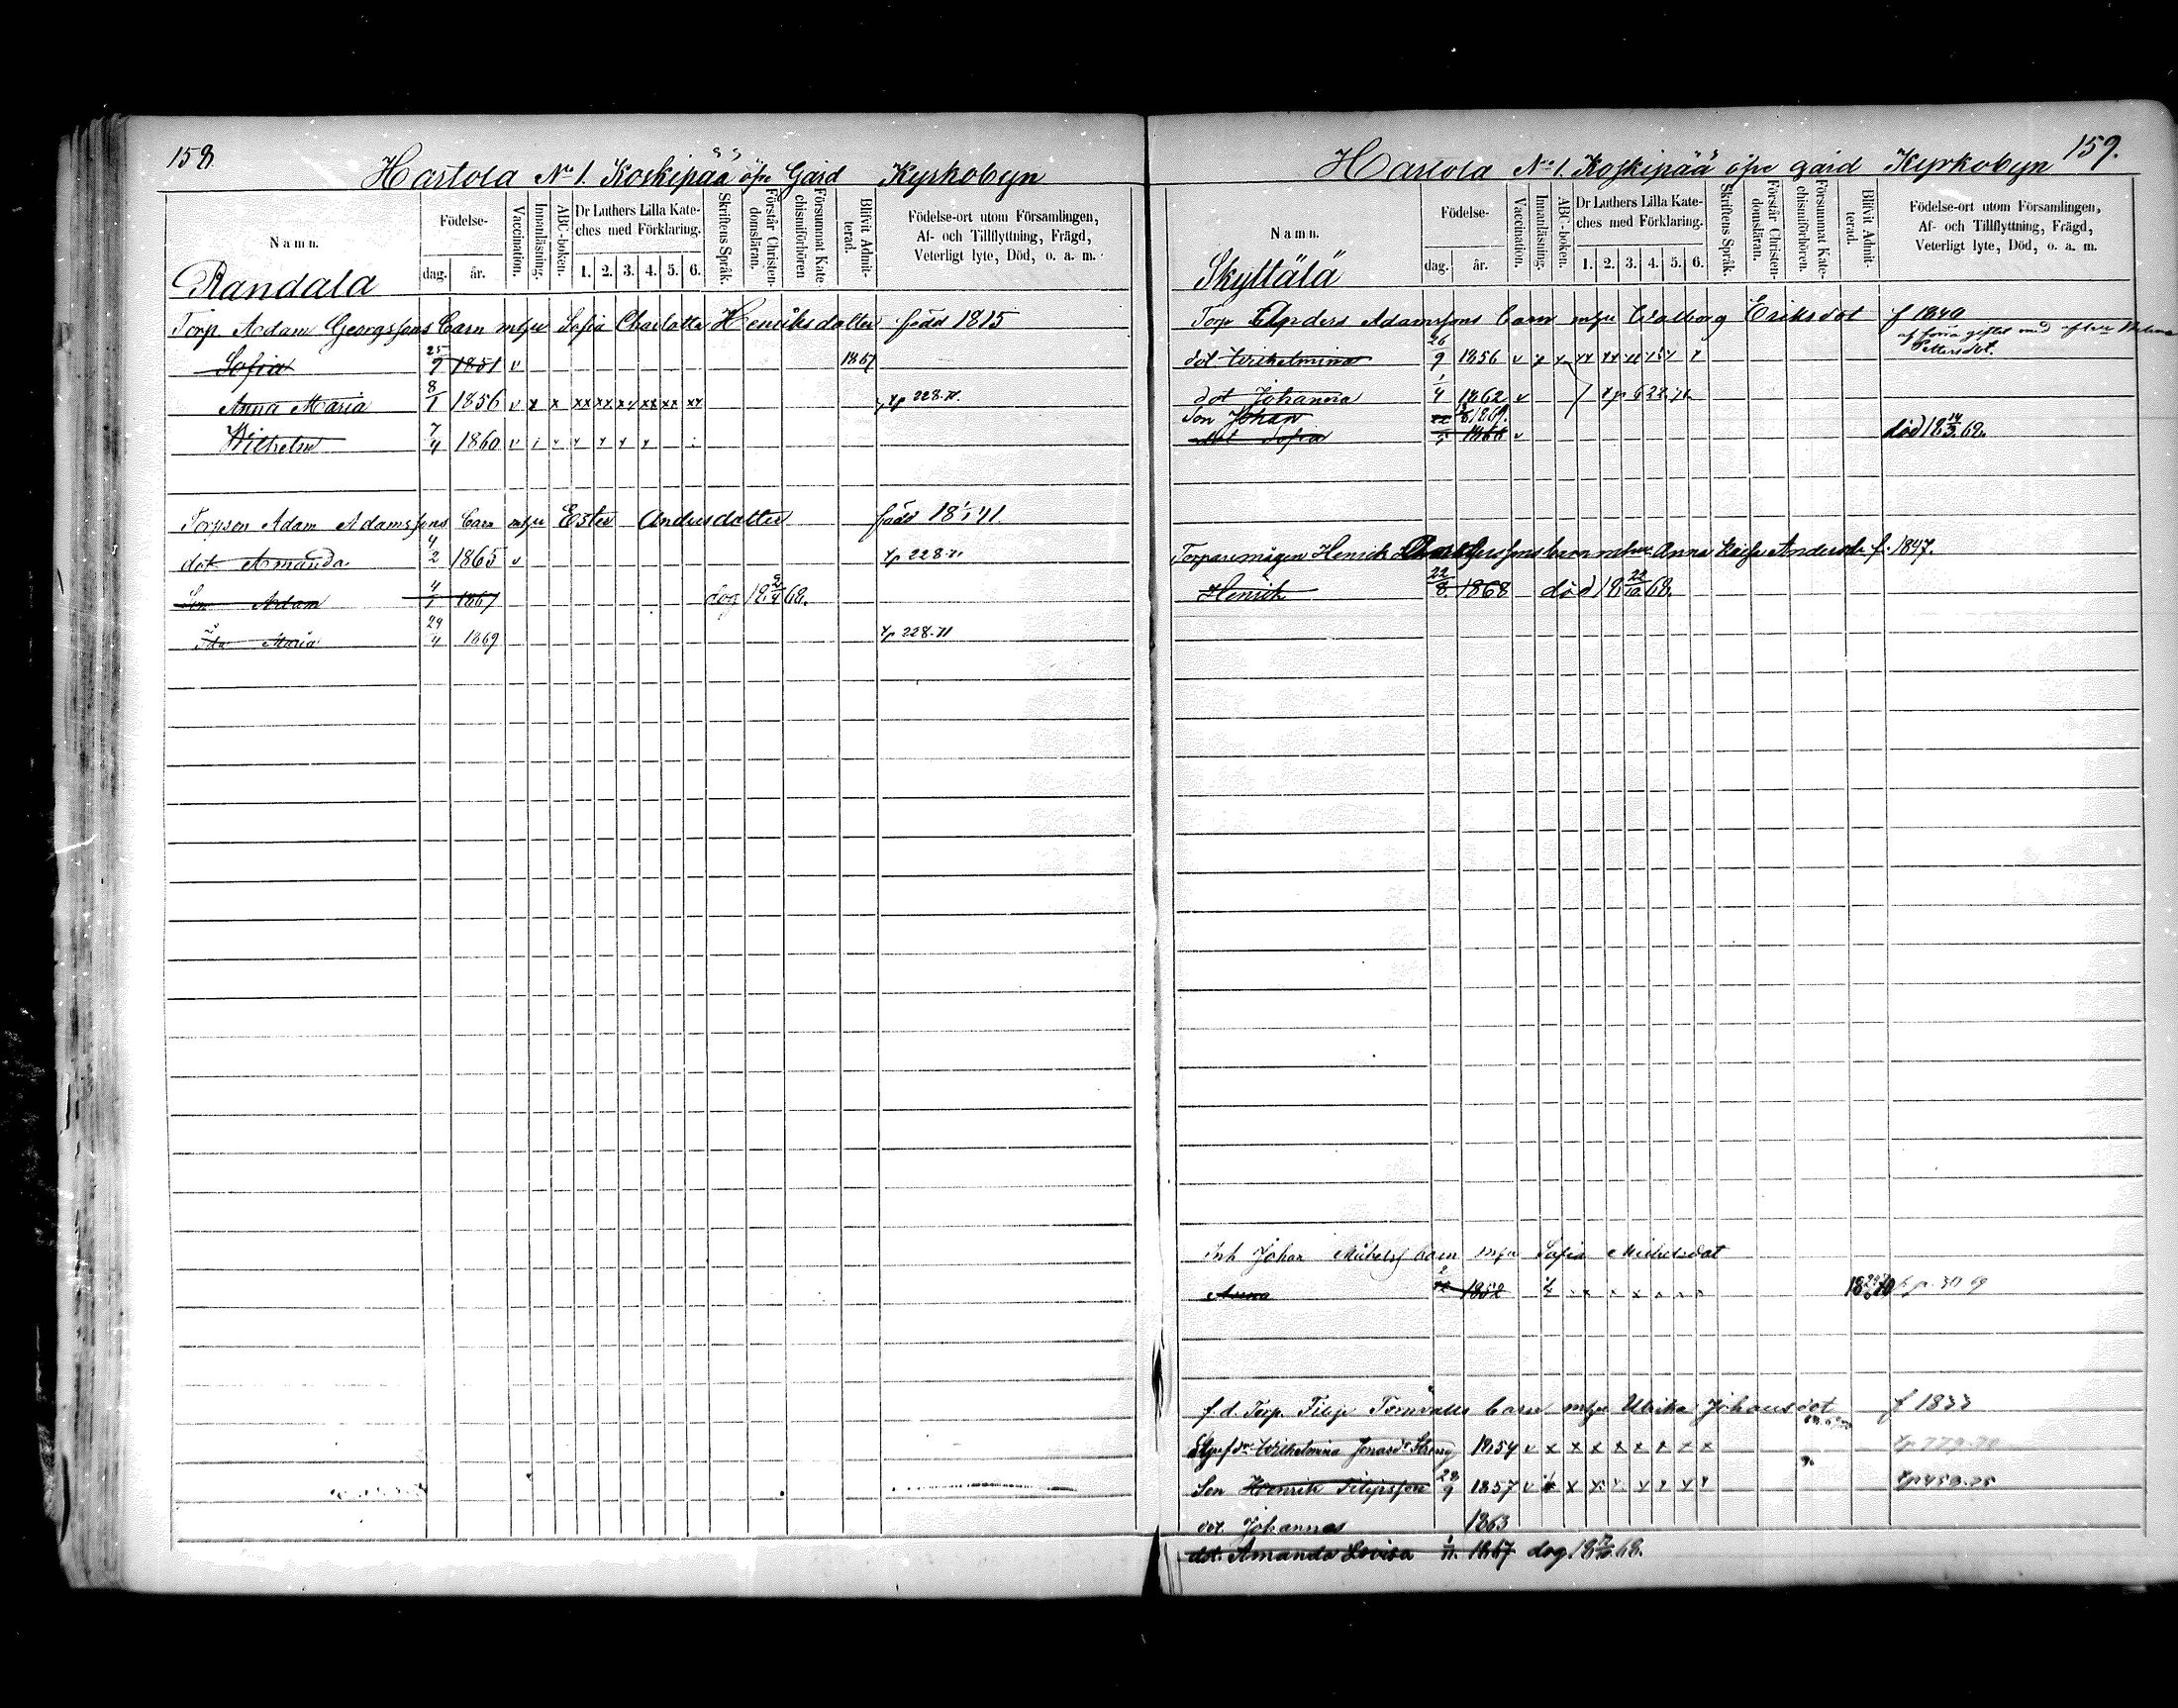 158.
Hartola No 1. Koskipää öfre Gård Kyrkobyn
Namn.
Födelse-
dag. år.
Vaccination.
Innanläsning.
ABC-boken.
Dr Luthers Lilla Kate-
ches med Förklaring.
1. 2. 3. 4. 5. 6.
Skriftens Språk.
Förstår Christen-
domsläran.
Försummat Kate-
chismiförhören
Blifvit Admit-
terad.
Födelse-ort utom Församlingen,
Af- och Tillflyttning, Frägd,
Veterligt lyte, Död, o. a. m.
Randala
Torp. Adam Georgssons barn m hu Sofia Charlotta Henriksdotter född 1815
Sofia 25/9 1851 v 1867
Anna Maria 8/1 1856 v x x xx xx xv xx xx xx 228.71.
Wilhelm 7/4 1860 v
Torpson Adam Adamssons barn m hu Ester Andersdotter född 18 1/1 41
dot Amanda 4/2 1865 v 228.71
Son Adam 4/1 1867 dog 18 2/4 68.
Ida Maria 29/4 1869 228.71
159.
Hartola No 1. Koskipää öfre gård Kyrkobyn
Namn.
Födelse-
dag. år.
Vaccination.
Innanläsning.
ABC-boken.
Dr Luthers Lilla Kate-
ches med Förklaring.
1. 2. 3. 4. 5. 6.
Skriftens Språk.
Förstår Christen-
domsläran.
Försummat Kate-
chismiförhören.
Blifvit Admit-
terad.
Födelse-ort utom Församlingen,
Af- och Tillflyttning, Frägd,
Veterligt lyte, Död, o. a. m.
Skyttälä
Torp Anders Adamssons barn m hu Walborg Eriksdot f 1840
Pettersdot.
dot Wilhelmina 26/9 1856 v
dot Johanna 1/4 1862 v
Son Johan 1869.
dot Sofia 1866 v död 18 14/3 68.
Torparemågen Henrik barn m hu Anna Andersd. f. 1847.
Henrik 22/8 1868 död 18 22/10 68.
Inh Johan barn m hu Sofia Michelsdot
Anna 1852
f. d. Torp. Filip Törnvalls barn m hu Ulrika Johansdot f 1833
Wilhelmina 1854 v x x x x x x x x
Son Henrik Filipsson 28/9 1857 v
dot. Johannes 1863
dot. Amanda Lovisa 1/11. 1867 dog 68.